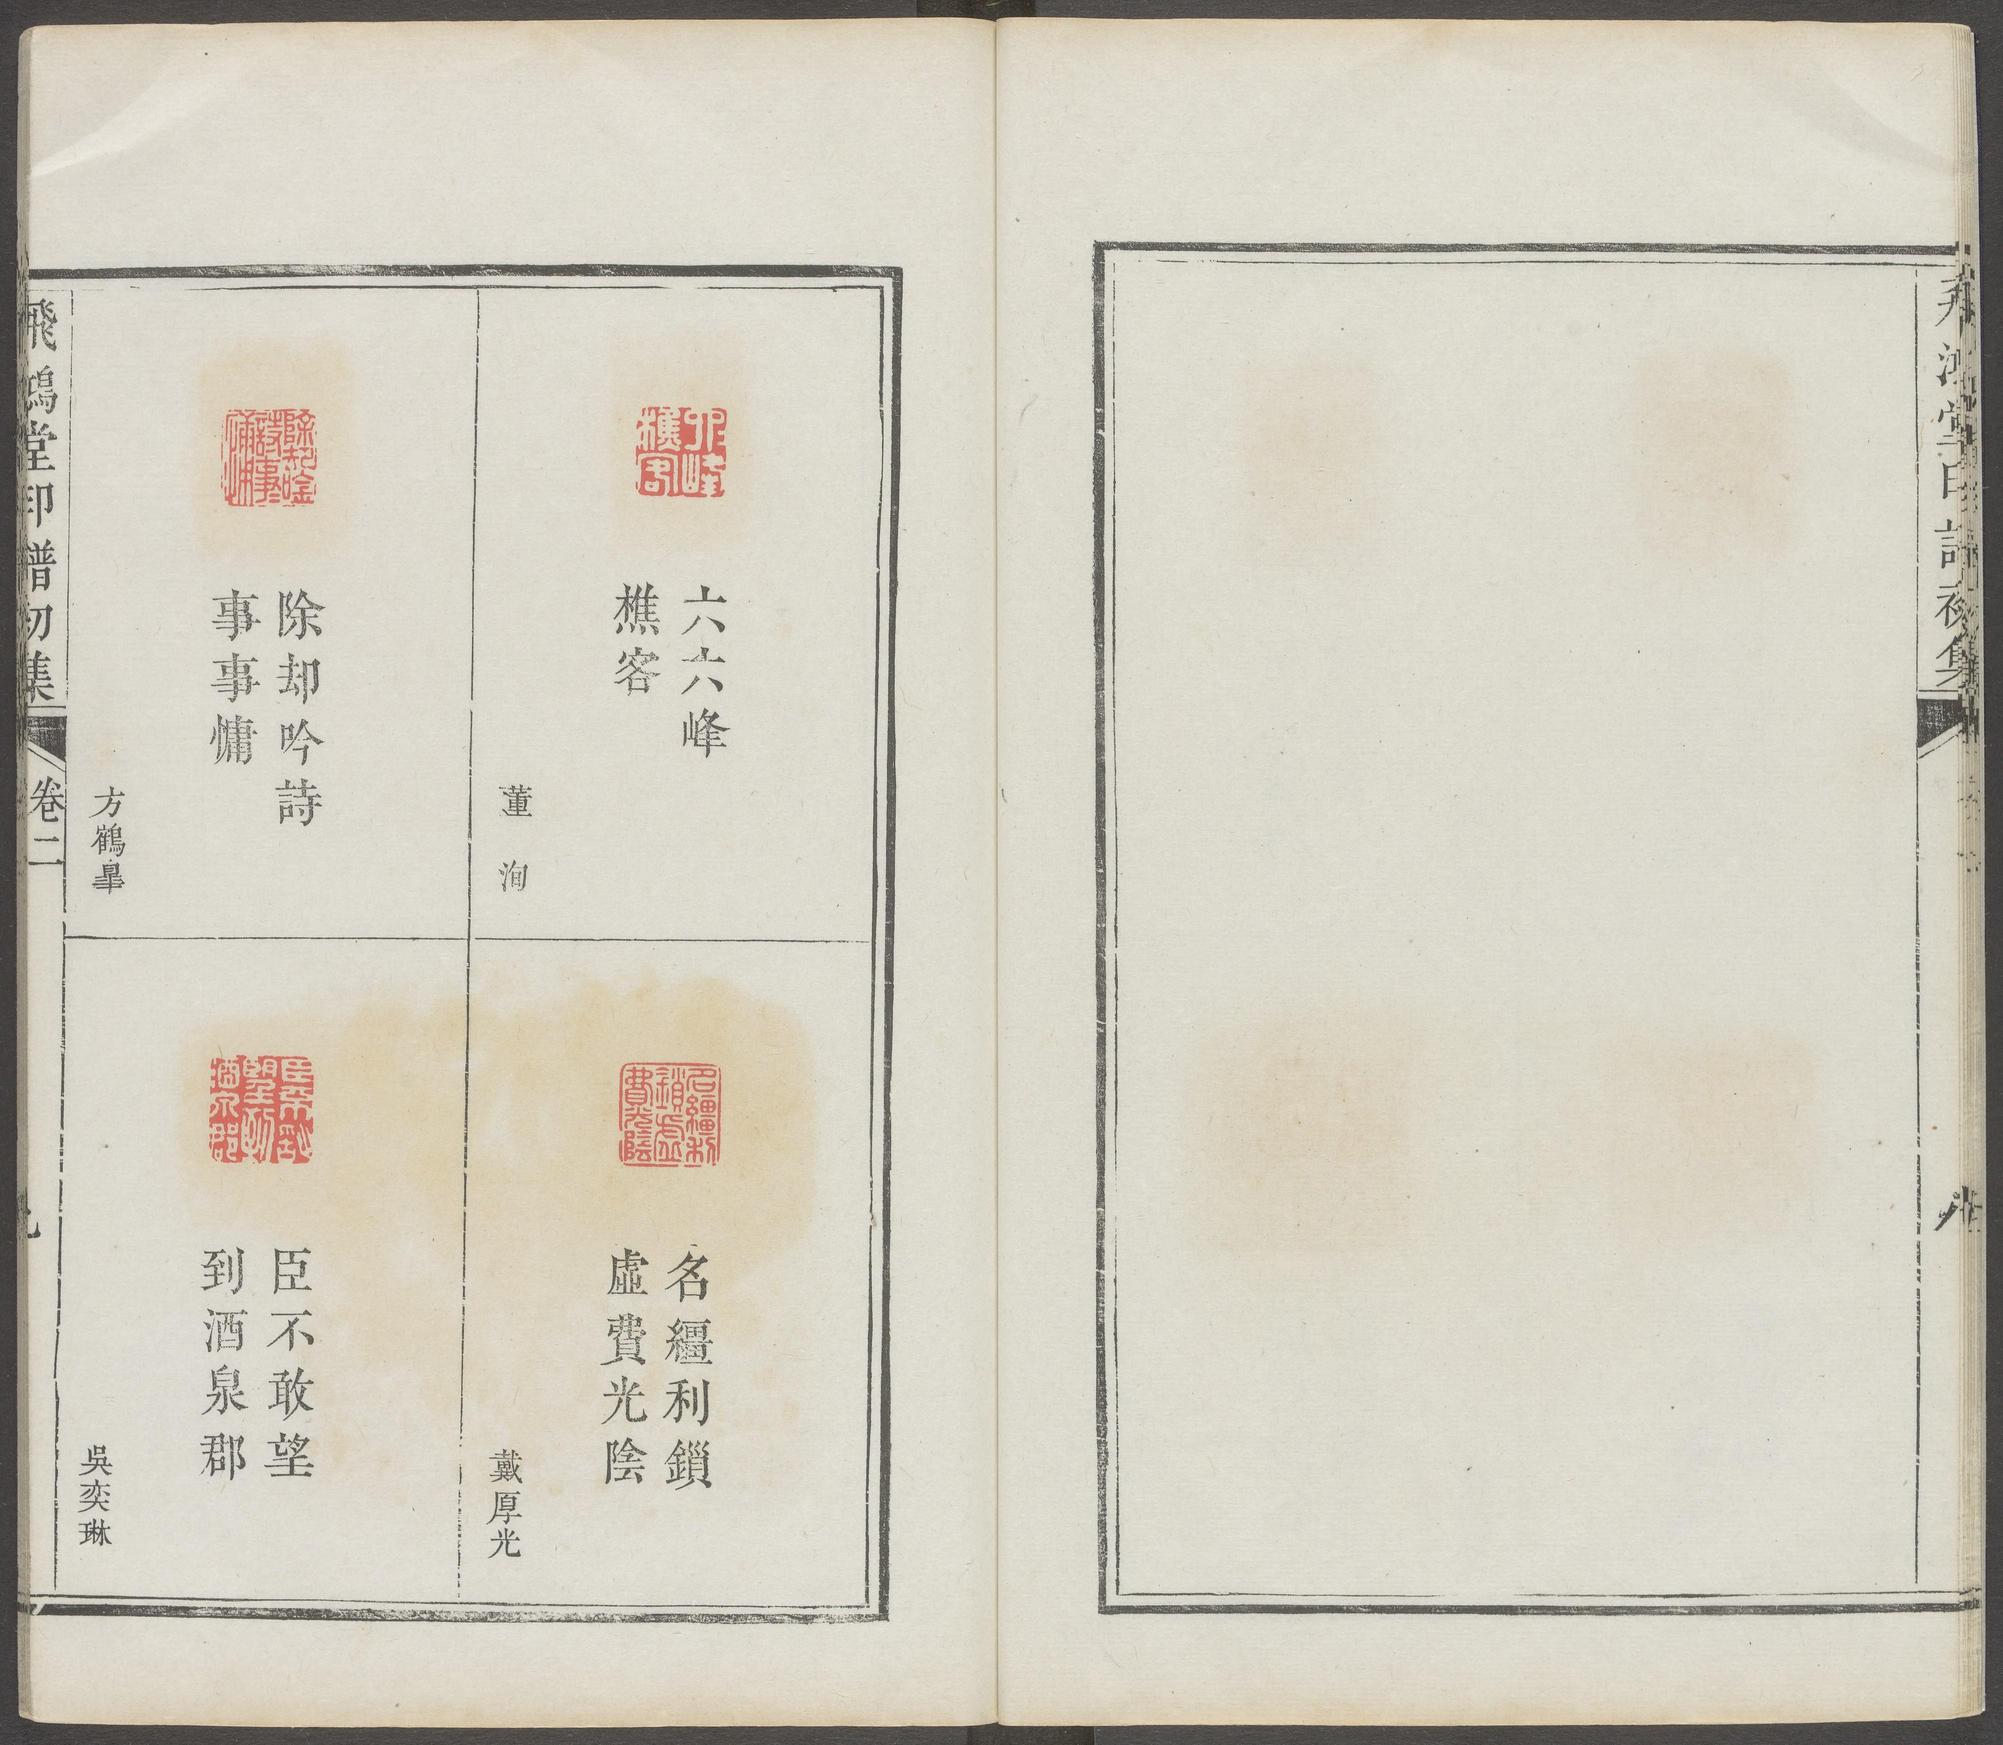 六六峰
樵客
董洵
名繮利鎖
虛費光陰
戴厚光
除却吟詩
事事慵
方鶴皐
臣不敢望
到酒泉郡
吳奕琳
飛鴻堂印譜初集
卷二
九